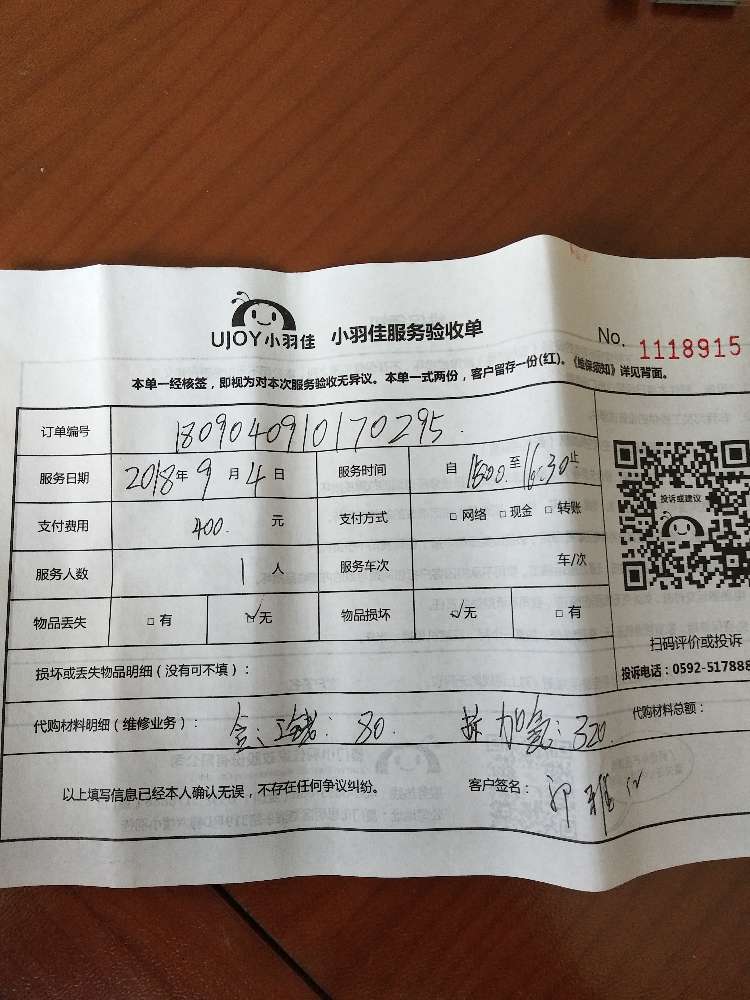 UJOY小羽佳 小羽佳服务验收单 No. 1118915
本单一经核签，即视为对本次服务验收无异议。本单一式两份，客户留存一份(红)。《维保须知》详见背面。
订单编号 1809040910170295
服务日期 2018年9月4日 服务时间 自1500至16:30止
支付费用 400 元 支付方式 □网络 □现金 □转账
服务人数 1人 服务车次 车/次
物品丢失 □有 ☑无 物品损坏 ☑无 □有
投诉或建议
扫码评价或投诉
投诉电话：0592-517888
损坏或丢失物品明细（没有可不填）：
代购材料明细（维修业务）： 80. 加氢：320. 代购材料总额：
以上填写信息已经本人确认无误，不存在任何争议纠纷。 客户签名：